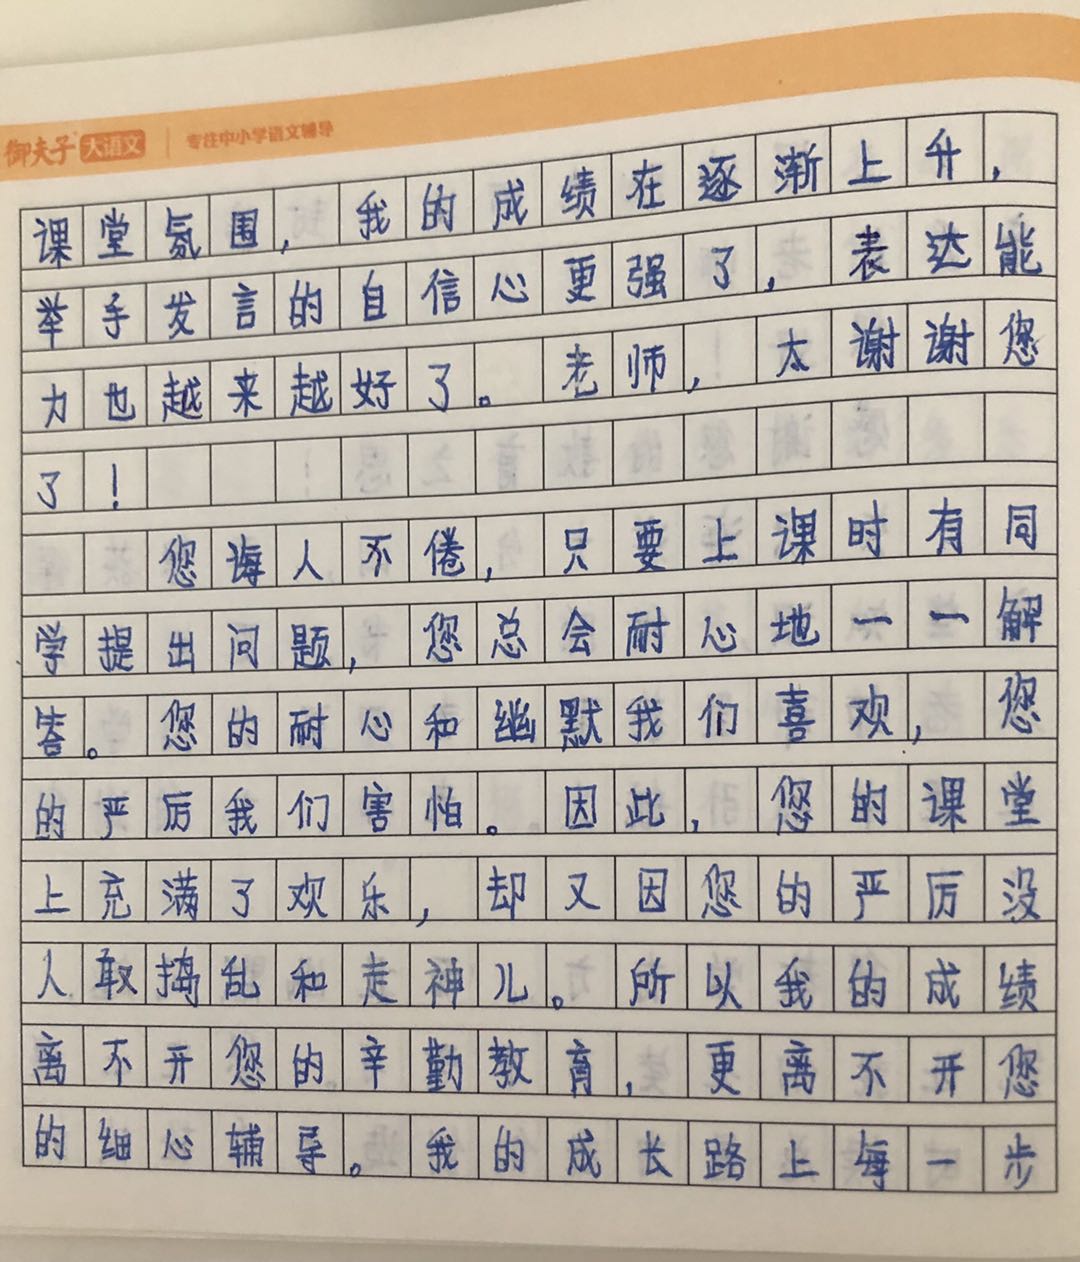 御夫子 大语文 专注中小学语文辅导
课堂氛围，我的成绩在逐渐上升，
举手发言的自信心更强了，表达能
力也越来越好了。老师，太谢谢您
了！
您诲人不倦，只要上课时有同
学提出问题，您总会耐心地一一解
答。您的耐心和幽默我们喜欢，您
的严厉我们害怕。因此，您的课堂
上充满了欢乐，却又因您的严厉没
人敢捣乱和走神儿。所以我的成绩
离不开您的辛勤教育，更离不开您
的细心辅导。我的成长路上每一步